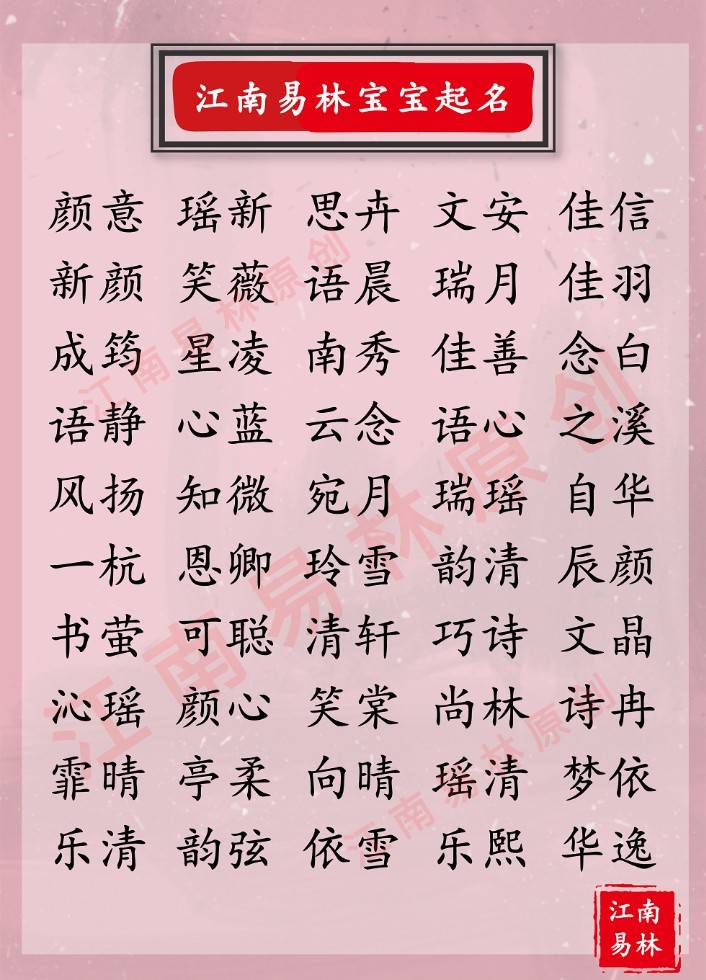 江南易林宝宝起名
颜意 瑶新 思卉 文安 佳信
新颜 笑薇 语晨 瑞月 佳羽
成筠 星凌 南秀 佳善 念白
语静 心蓝 云念 语心 之溪
风扬 知微 宛月 瑞瑶 自华
一杭 恩卿 玲雪 韵清 辰颜
书萤 可聪 清轩 巧诗 文晶
沁瑶 颜心 笑棠 尚林 诗冉
霏晴 亭柔 向晴 瑶清 梦依
乐清 韵弦 依雪 乐熙 华逸
江南易林原创
江南易林原创
江南易林原创
江南
易林